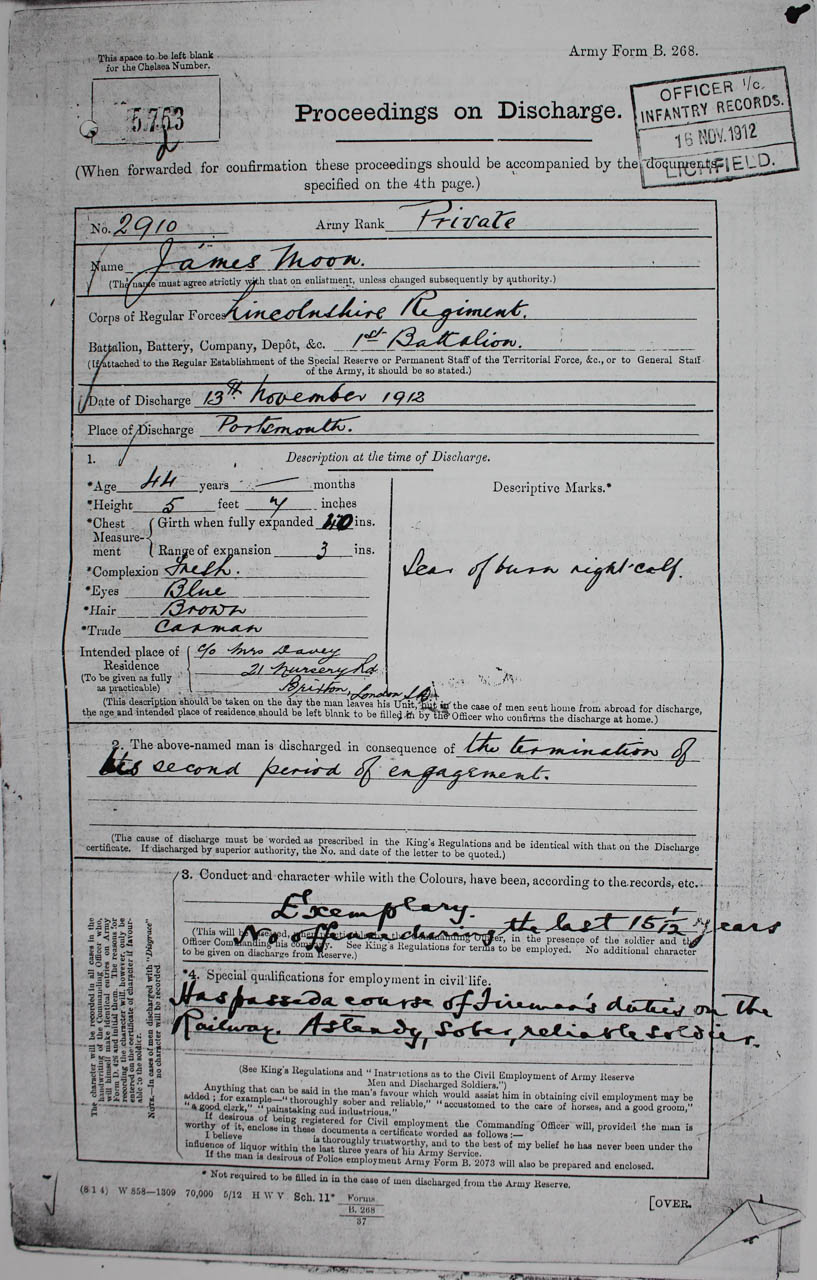 This space to be left blank
for the Chelsea Number.
Army Form B. 268.
5763
Proceedings on Discharge.
OFFICER I/c.
INFANTRY RECORDS.
16 NOV. 1912
LICHFIELD.
(When forwarded for confirmation these proceedings should be accompanied by the documents
specified on the 4th page.)
No. 2910 Army Rank Private
Name James Moon.
(The name must agree strictly with that on enlistment, unless changed subsequently by authority.)
Corps of Regular Forces Lincolnshire Regiment.
Battalion, Battery, Company, Depôt, &c. 1st Battalion.
(If attached to the Regular Establishment of the Special Reserve or Permanent Staff of the Territorial Force, &c., or to General Staff
of the Army, it should be so stated.)
Date of Discharge 13th November 1912
Place of Discharge Portsmouth.
1. Description at the time of Discharge.
*Age 44 years — months
*Height 5 feet 7 inches
*Chest Measure-ment
Girth when fully expanded 40 ins.
Range of expansion 3 ins.
*Complexion Fresh.
*Eyes Blue
*Hair Brown
*Trade Carman
Descriptive Marks.*
Scar of burn right calf.
Intended place of c/o Mrs Davey
Residence 21 Nursery Rd
(To be given as fully
as practicable) Brixton, London
(This description should be taken on the day the man leaves his Unit, but in the case of men sent home from abroad for discharge,
the age and intended place of residence should be left blank to be filled in by the Officer who confirms the discharge at home.)
2. The above-named man is discharged in consequence of the termination of
his second period of engagement.
(The cause of discharge must be worded as prescribed in the King's Regulations and be identical with that on the Discharge
certificate. If discharged by superior authority, the No. and date of the letter to be quoted.)
The character will be recorded in all cases in the
handwriting of the Commanding Officer who,
will himself make identical entries on Army
Form D. 426 and initial them. The reasons for
recording the character will, however, only be
entered on the certificate of character if favour-
able to the soldier.
NOTE.—In cases of men discharged with "Disgrace"
no character will be recorded
3. Conduct and character while with the Colours, have been, according to the records, etc.
Exemplary.
No offence during the last 15 1/12 years
(This will be Officer, in the presence of the soldier and the
Officer Commanding his company. See King's Regulations for terms to be employed. No additional character
to be given on discharge from Reserve.)
*4. Special qualifications for employment in civil life.
Has passed a course of Fireman's duties on the
Railway. A steady, sober, reliable soldier.
(See King's Regulations and "Instructions as to the Civil Employment of Army Reserve
Men and Discharged Soldiers.")
Anything that can be said in the man's favour which would assist him in obtaining civil employment may be
added; for example—"thoroughly sober and reliable," "accustomed to the care of horses, and a good groom,"
"a good clerk," "painstaking and industrious."
If desirous of being registered for Civil employment the Commanding Officer will, provided the man is
worthy of it, enclose in these documents a certificate worded as follows:—
I believe is thoroughly trustworthy, and to the best of my belief he has never been under the
influence of liquor within the last three years of his Army Service.
If the man is desirous of Police employment Army Form B. 2073 will also be prepared and enclosed.
* Not required to be filled in in the case of men discharged from the Army Reserve.
(8 1 4) W 858—1309 70,000 5/12 H W V Sch. 11* Forms
B. 268
37
[OVER.